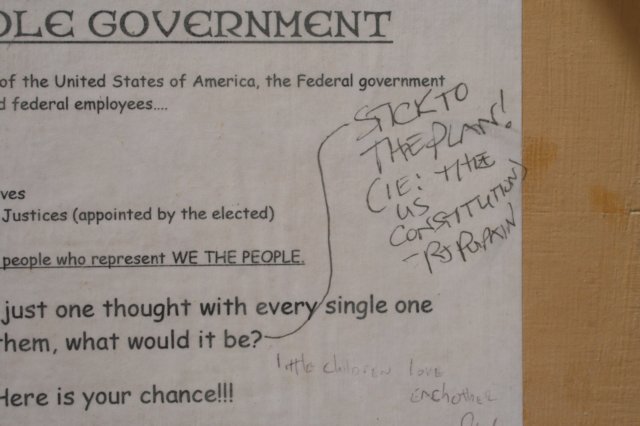 OLE GOVERNMENT
of the United States of America, the Federal government
d federal employees....
ves
Justices (appointed by the elected)
people who represent WE THE PEOPLE.
just one thought with every single one
hem, what would it be?
Here is your chance!!!
STICK TO
THE PLAN!
(IE: THE
US
CONSTITUTION)
little children love
eachother